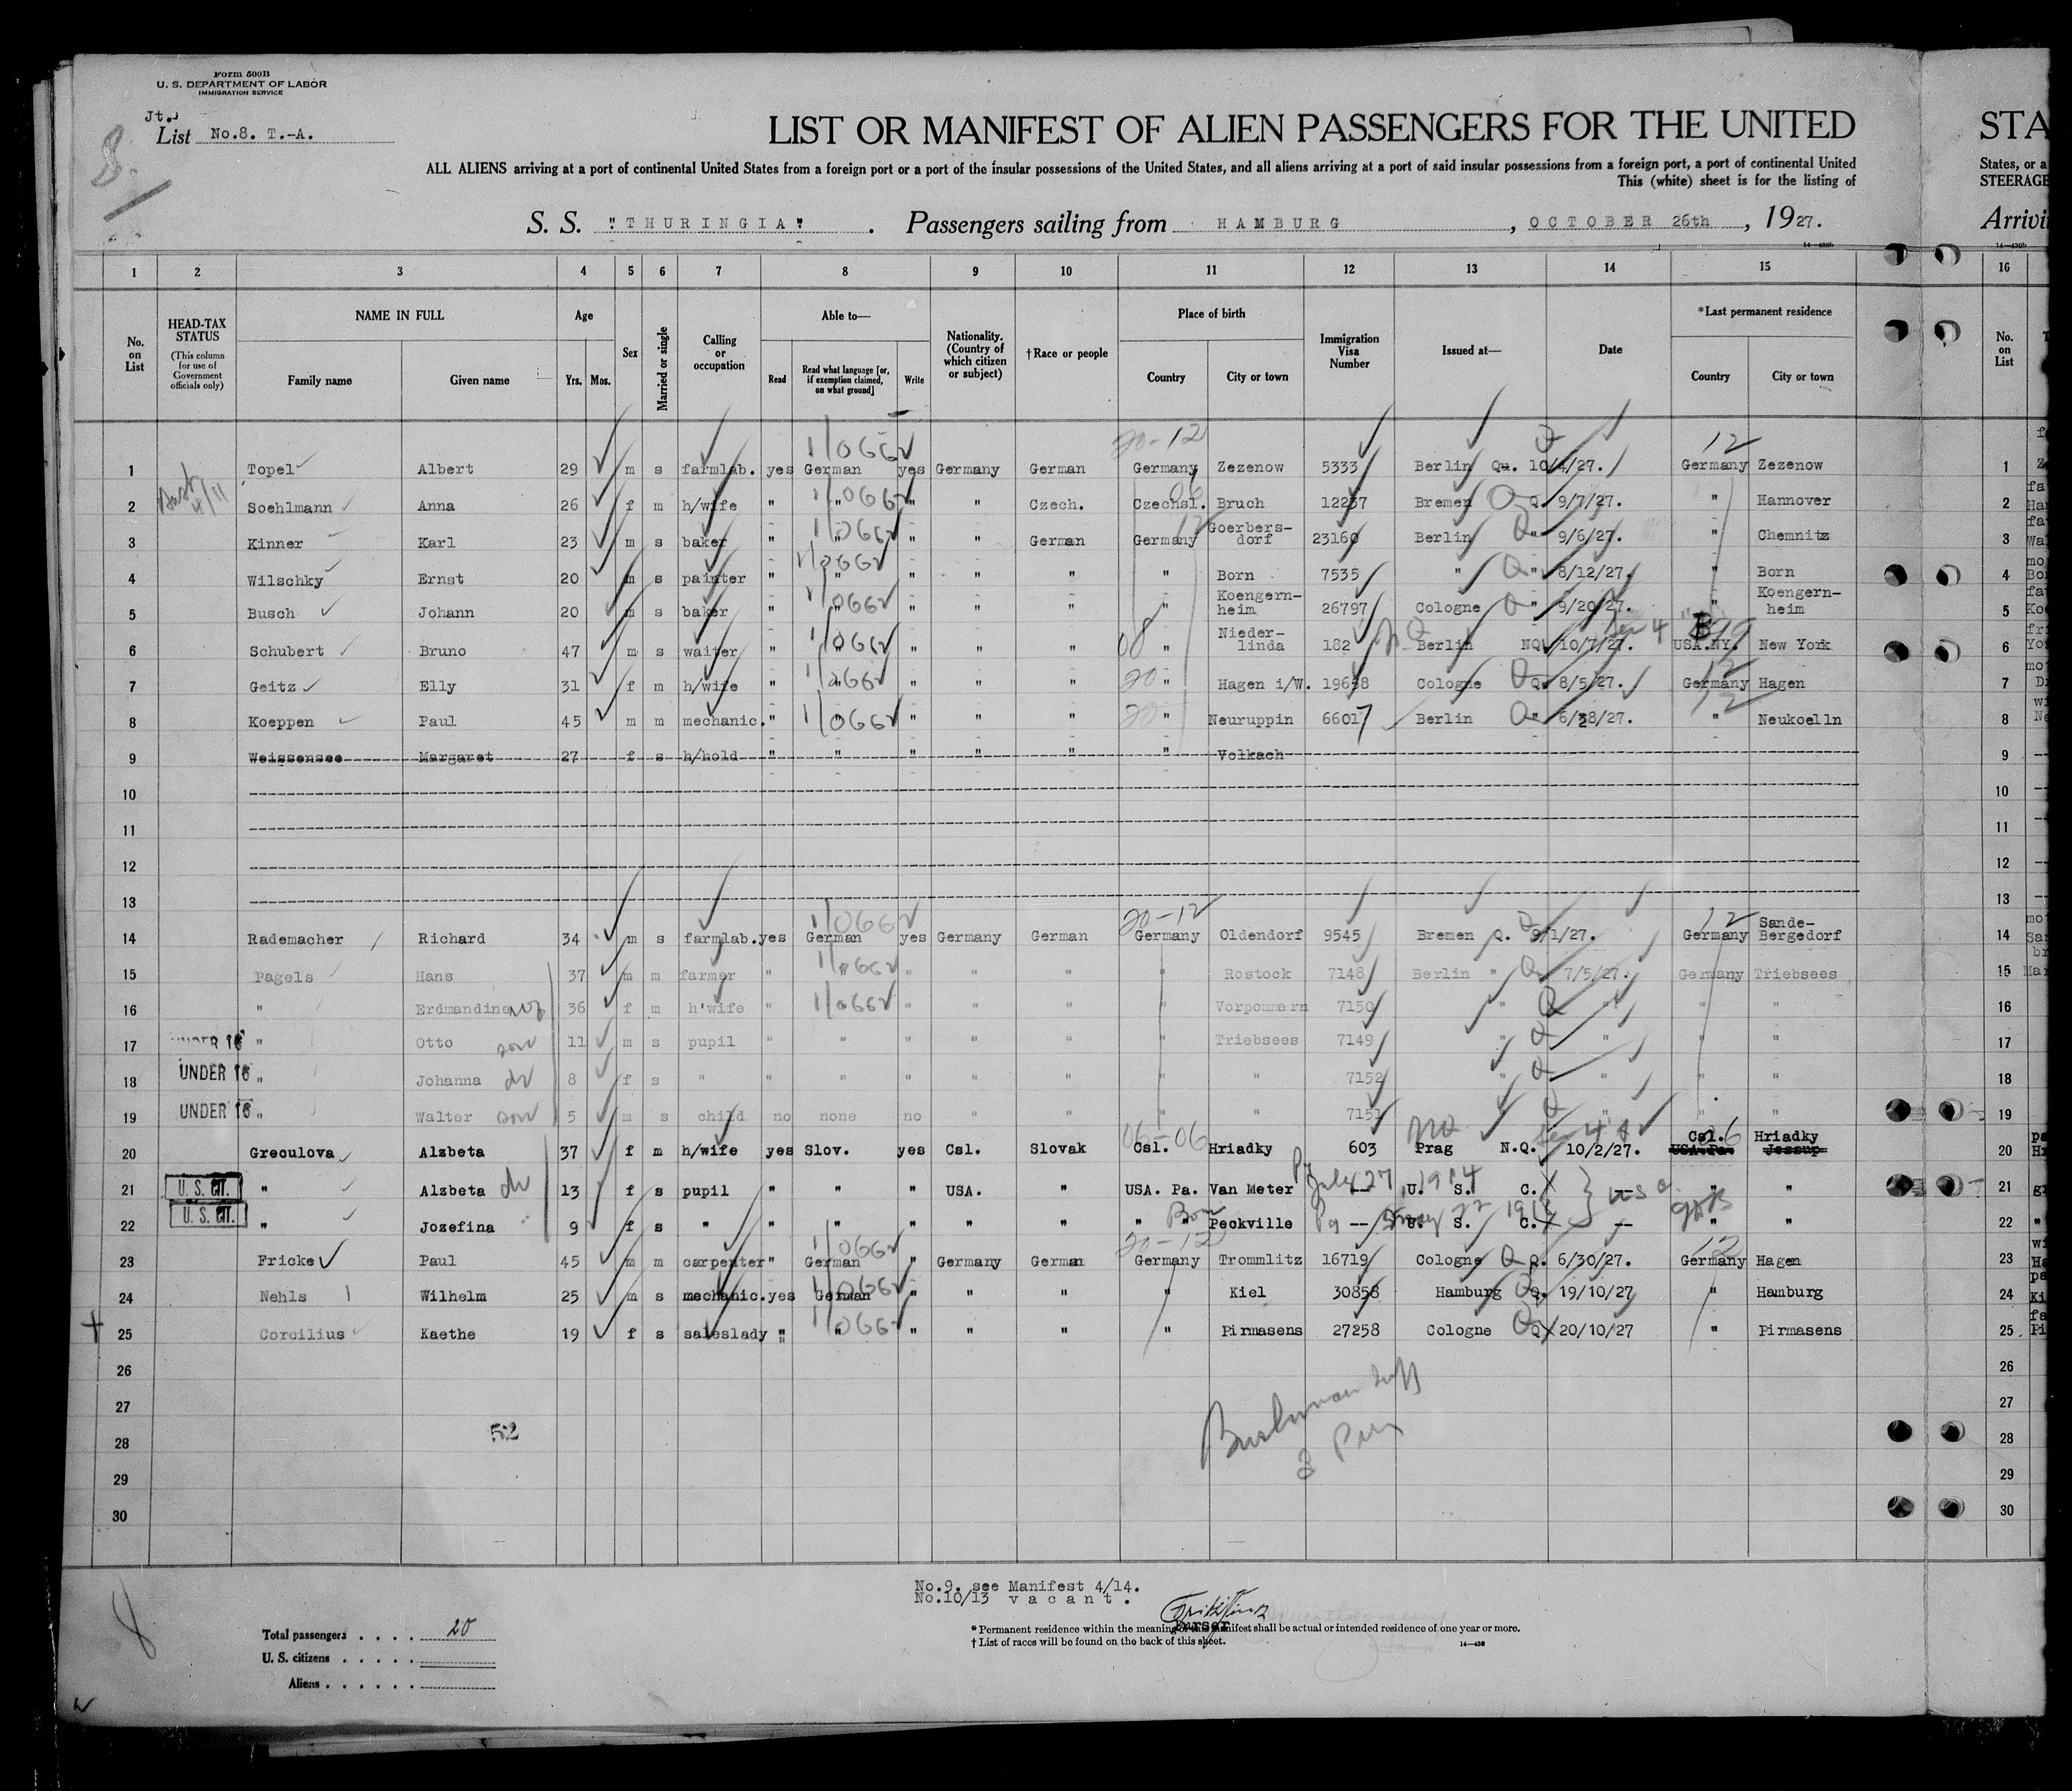 Form 500B
U. S. DEPARTMENT OF LABOR
IMMIGRATION SERVICE
Jt.
List No.8. T.-A.
8.
LIST OR MANIFEST OF ALIEN PASSENGERS FOR THE UNITED STA
ALL ALIENS arriving at a port of continental United States from a foreign port or a port of the insular possessions of the United States, and all aliens arriving at a port of said insular possessions from a foreign port, a port of continental United States, or a
This (white) sheet is for the listing of STEERAGE
S. S. "THURINGIA". Passengers sailing from HAMBURG, OCTOBER 26th, 1927. Arrivi
1 2 3 4 5 6 7 8 9 10 11 12 13 14 15 16
No. on List
HEAD-TAX STATUS (This column for use of Government officials only)
NAME IN FULL Family name Given name
Age Yrs. Mos.
Sex
Married or single
Calling or occupation
Able to— Read Read what language [or, if exemption claimed, on what ground] Write
Nationality. (Country of which citizen or subject)
†Race or people
Place of birth Country City or town
Immigration Visa Number
Issued at—
Date
*Last permanent residence Country City or town
No. on List
20-12 12
1 Topel Albert 29 m s farmlab. yes German yes Germany German Germany Zezenow 5333 Berlin Qu. 10/4/27. Germany Zezenow 1
2 Soehlmann Anna 26 f m h/wife " " " " Czech. Czechsl. Bruch 12237 Bremen Q. 9/7/27. " Hannover 2
3 Kinner Karl 23 m s baker " " " " German Germany Goerbers-dorf 23160 Berlin " 9/6/27. " Chemnitz 3
4 Wilschky Ernst 20 m s painter " " " " " " Born 7535 " " 8/12/27. " Born 4
5 Busch Johann 20 m s baker " " " " " " Koengern-heim 26797 Cologne " 9/20/27. " Koengern-heim 5
6 Schubert Bruno 47 m s waiter " " " " " " Nieder-linda 182 Berlin NQ. 10/7/27. USA.NY. New York 6
7 Geitz Elly 31 f m h/wife " " " " " " Hagen i/W. 19658 Cologne Q. 8/5/27. Germany Hagen 7
8 Koeppen Paul 45 m m mechanic. " " " " " " Neuruppin 66017 Berlin " 6/28/27. " Neukoelln 8
9 Weissensee Margaret 27 f s h/hold " " " " " " Volkach 9
10 10
11 11
12 12
13 13
20-12 12
14 Rademacher Richard 34 m s farmlab. yes German yes Germany German Germany Oldendorf 9545 Bremen Q. 9/1/27. Germany Sande-Bergedorf 14
15 Pagels Hans 37 m m farmer " " " " " Rostock 7148 Berlin " 7/5/27. Germany Triebsees 15
16 " Erdmandine 36 f m h'wife " " " " " Vorpommern 7150 " " " " 16
17 UNDER 16 " Otto son 11 m s pupil " " " " " " Triebsees 7149 " " " " 17
18 UNDER 16 " Johanna 8 f s " " " " " " " " 7152 " " " " 18
19 UNDER 16 " Walter son 5 m s child no none no " " " " 7151 " " " " 19
20 Greculova Alzbeta 37 f m h/wife yes Slov. yes Csl. Slovak Csl. 06-06 Hriadky 603 Prag N.Q. 10/2/27. Csl. USA.Pa. Hriadky Jessup 20
21 U. S. CIT. " Alzbeta 13 f s pupil " " " USA. " USA. Pa. Van Meter -- U. S. C. -- " " 21
22 U. S. CIT. " Jozefina 9 f s " " " " " " " " Peckville -- U. S. C. -- " " 22
23 Fricke Paul 45 m m carpenter " German " Germany German Germany Trommlitz 16719 Cologne Q. 6/30/27. Germany Hagen 23
24 Nehls Wilhelm 25 m s mechanic. yes German " " " " Kiel 30858 Hamburg Q. 19/10/27 " Hamburg 24
25 Corcilius Kaethe 19 f s saleslady " " " " " " Pirmasens 27258 Cologne Q 20/10/27 " Pirmasens 25
26 26
27 27
28 52 28
29 29
30 30
No.9. see Manifest 4/14.
No.10/13 vacant.
Purser
Total passengers . . . . 20
U. S. citizens . . . . .
Aliens . . . . . .
* Permanent residence within the meaning of this manifest shall be actual or intended residence of one year or more.
† List of races will be found on the back of this sheet.
14—430